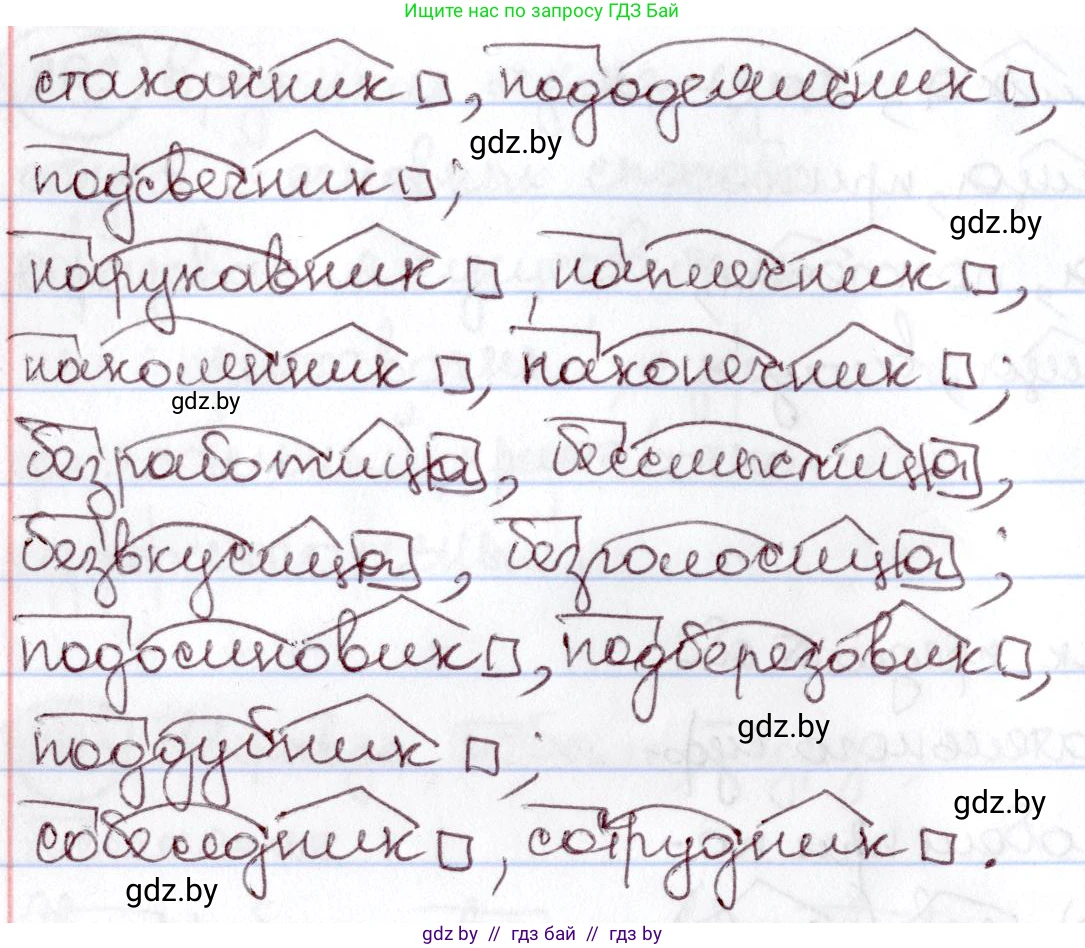 Ищите нас по запросу ГДЗ Бай
стаканник, пододеяльник,
gdz.by
подсвечник;
gdz.by
нарукавник, наплечник,
наколенник, наконечник;
gdz.by
безработица, бессмыслица,
безвкусица, безголосица;
подосиновик, подберезовик,
gdz.by
поддубник;
gdz.by
собеседник, сотрудник.
gdz.by
gdz.by // гдз бай // гдз by